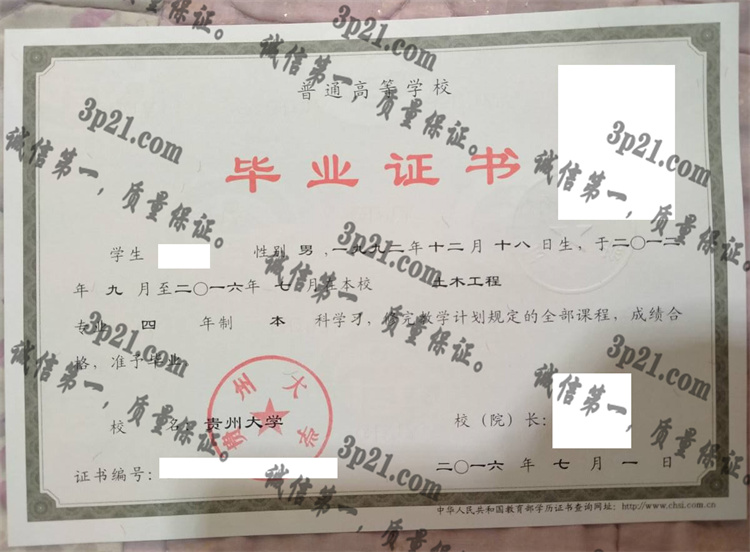 普通高等学校
毕业证书
学生 性别 男,一九九二年十二月十八日生,于二〇一二
年 九 月至二〇一六年 七 月在本校 土木工程
专业 四 年制 本 科学习,修完教学计划规定的全部课程,成绩合
格,准予毕业。
校 名: 贵州大学
校(院)长:
证书编号:
二〇一六 年 七 月 一 日
中华人民共和国教育部学历证书查询网址: http://www.chsi.com.cn
贵州大学
质量保证。
3p21.com
诚信第一,质量保证。
3p21.com
诚信第一,质量保证。
3p21.com
诚信第一,质量保证。
3p21.com
诚信第一,质量保证。
3p21.com
诚信第一,质量保证。
3p21.com
诚信第一,质量保证。
3p21.com
诚信第一,质量保证。
3p21.com
诚信第一,质量保证。